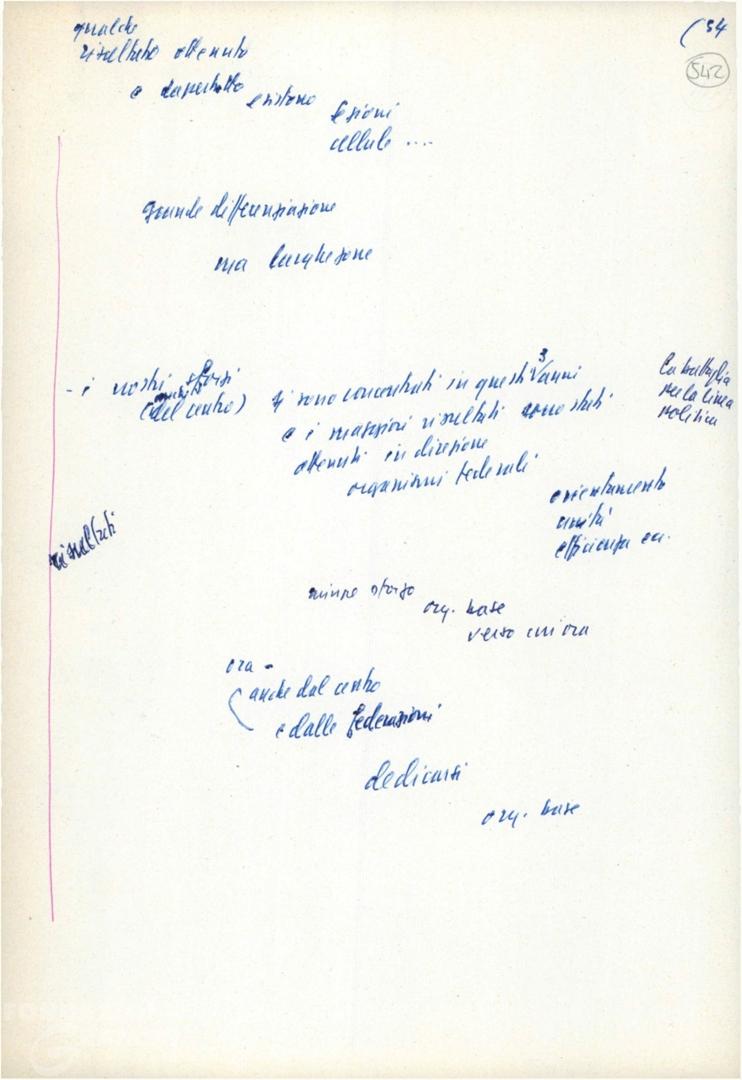 (54
542
qualche
risultato ottenuto
e dappertutto
esistono
sezioni
cellule ....
grande differenziazione
ma
- i nostri sforzi
(del centro)
si sono concentrati in questi 3 anni
e i maggiori risultati sono stati
ottenuti in direzione
organismi federali
la battaglia
sulla linea
politica
orientamento
unità
efficienza ecc.
risultati
minore sforzo
org. base
verso cui ora
ora -
anche dal centro
e dalle federazioni
dedicarsi
org. base